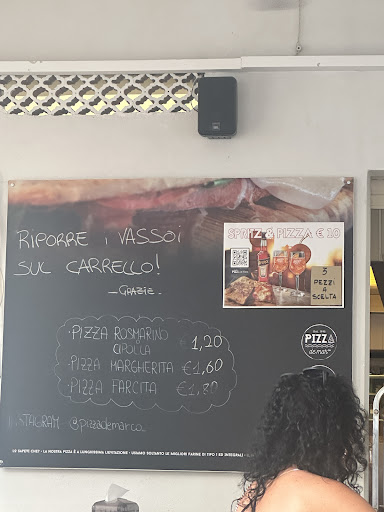 RIPORRE I VASSOI
SUL CARRELLO!
- GRAZIE -
SPRIZ & PIZZA € 10
3
PEZZI A
SCELTA
• PIZZA ROSMARINO
CIPOLLA € 1,20
• PIZZA MARGHERITA €1,60
• PIZZA FARCITA €1,80
PIZZA
de mar
@pizzademarco_
LO SAPETE CHE? - LA NOSTRA PIZZA È A LUNGHISSIMA LIEVITAZIONE - USIAMO SOLTANTO LE MIGLIORI FARINE DI TIPO 1 ED INTEGRALI